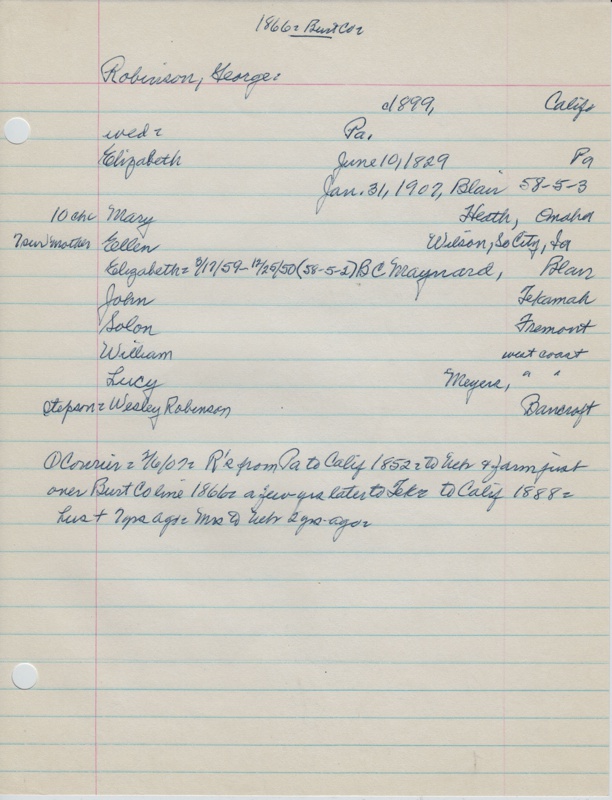 1866= Burt Co=
Robinson, George=
d1899, Calif
wed= Pa.
Elizabeth June 10, 1829 Pa
Jan. 31, 1907, Blair 58-5-3
10 chi Mary Heath, Omaha
7 surv mother Ellen Wilson, So City, Ia
Elizabeth= /17/59-12/25/50 (58-5-2) BC Maynard, Blair
John Tekamah
Solon Fremont
William west coast
Lucy Meyers, " "
stepson= Wesley Robinson Bancroft
Courier= 2/6/07= R's from Pa to Calif 1852= to Nebr & farm just
over Burt Co line 1866= a few yrs later to Tek= to Calif 1888=
hus + 7 yrs ago= Mrs to Nebr 2 yrs ago=